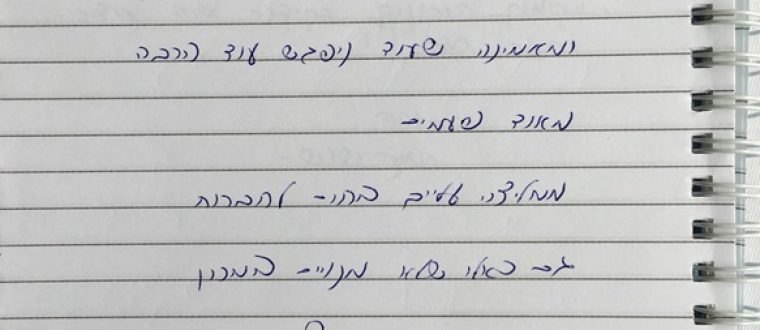 ומאמינה שעוד ניפגש עוד הרבה
מאוד פעמים
ממליצה עלייך בחום לחברות
גם כאלו שלא מנויים במכון